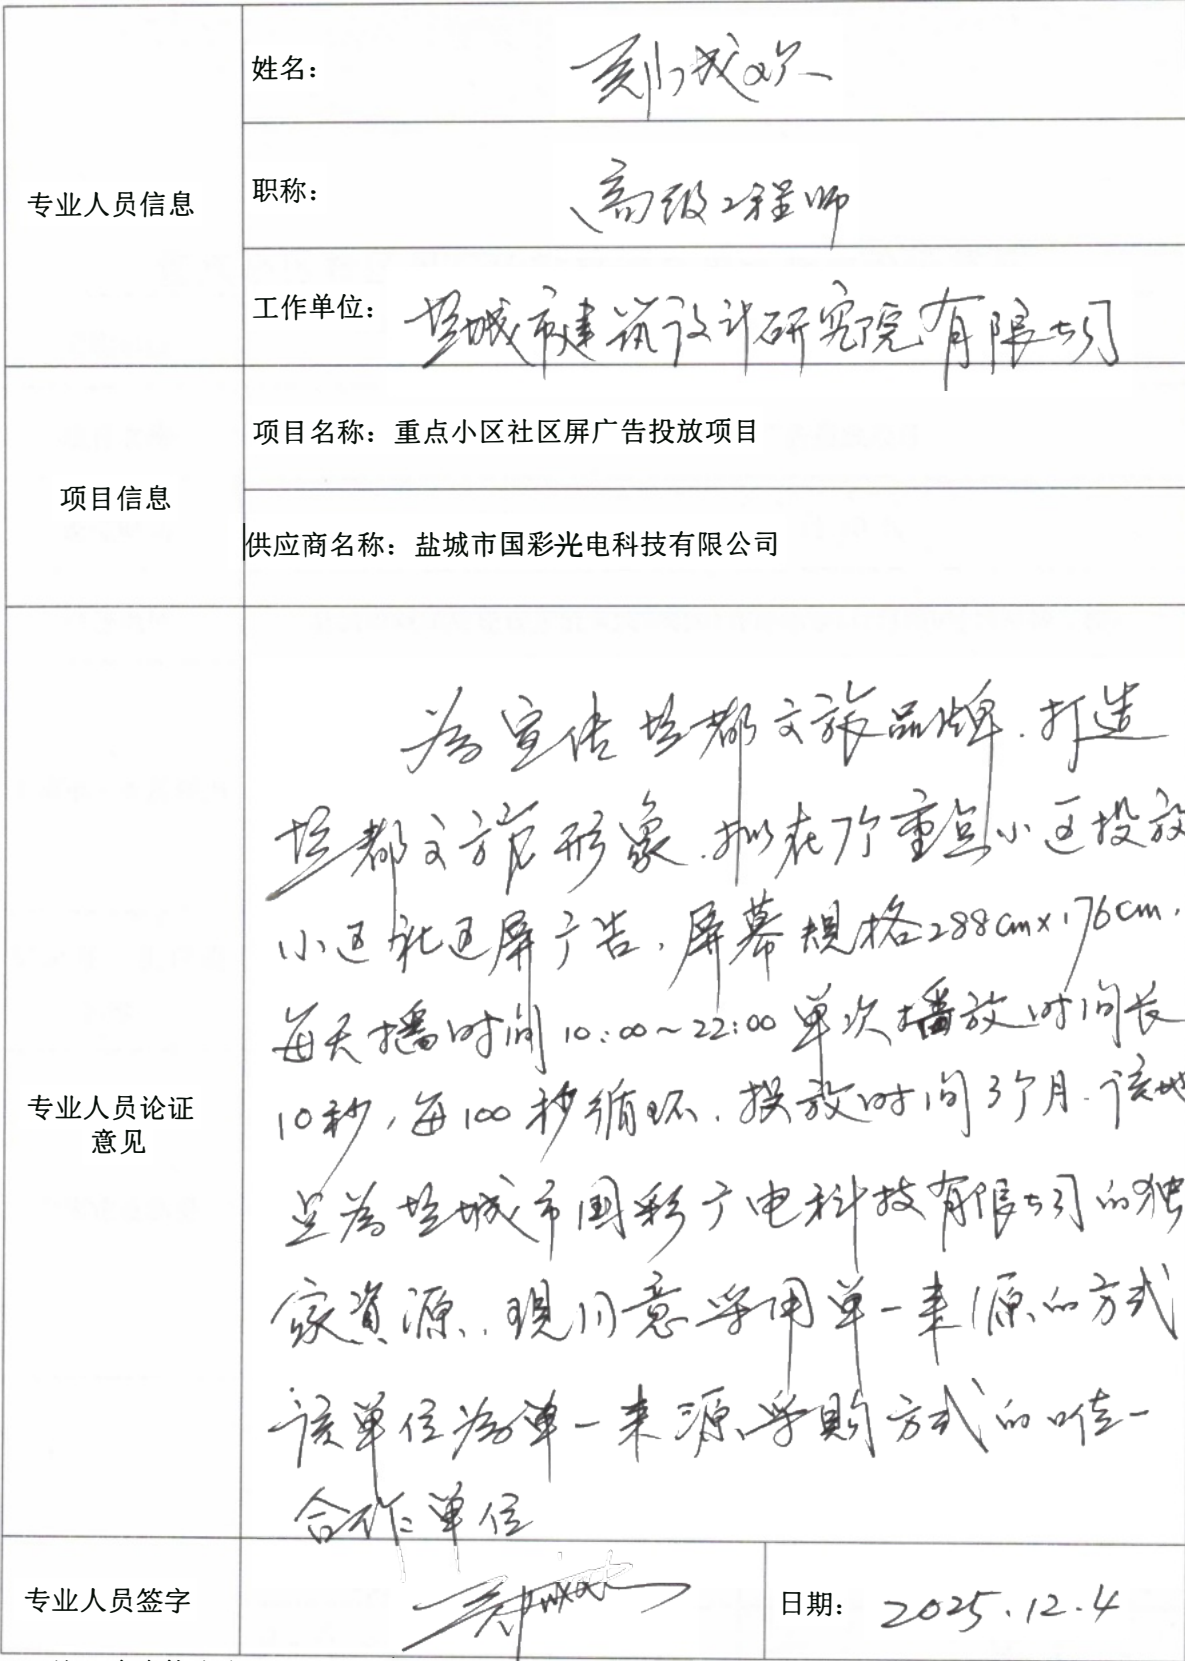 专业人员信息
姓名：刘成欢
职称：高级工程师
工作单位：盐城市建筑设计研究院有限公司
项目信息
项目名称：重点小区社区屏广告投放项目
供应商名称：盐城市国彩光电科技有限公司
专业人员论证
意见
为宣传盐都文旅品牌.打造
盐都文旅形象.拟在7个重点小区投放
小区社区屏广告，屏幕规格288cm×176cm，
每天播时间10:00～22:00单次播放时间长
10秒，每100秒循环.投放时间3个月.该地
点为盐城市国彩广电科技有限公司的独
家資源.現同意采用单一来源的方式
该单位为单一来源采购方式的唯一
合作单位
专业人员签字
日期：2025.12.4